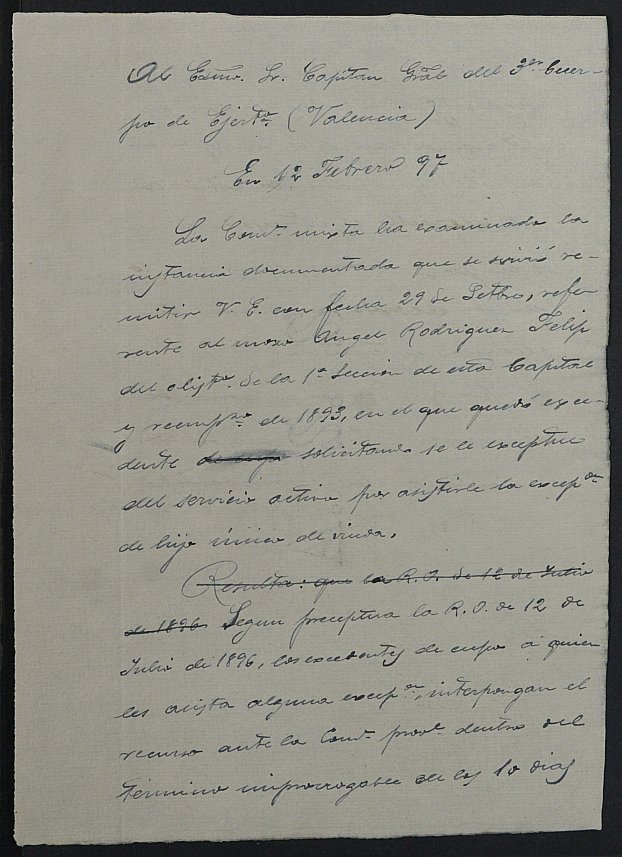 Al Exmo. Sr. Capitan Gral del 3er Cuer-
po de Ejerto. (Valencia)
En 12 Febrero 97
La Comn. mixta ha examinado la
instancia documentada que se sirvió re-
mitir V. E. con fecha 29 de Setbre, refe
rente al mozo Angel Rodriguez Felip
del alistto. de la 1a Sección de esta Capital
y reempzo. de 1893, en el que quedó exce-
dente de cupo solicitando se le exceptue
del servicio activo por asistirle la excepon
de hijo único de viuda.
Resulta: que la R.O. de 12 de Julio
de 1896 Segun preceptua la R.O. de 12 de
Julio de 1896, los excedentes de cupo á quien
les asista alguna excepon, interpongan el
recurso ante la Comn. provl. dentro del
término improrrogable de los 10 dias